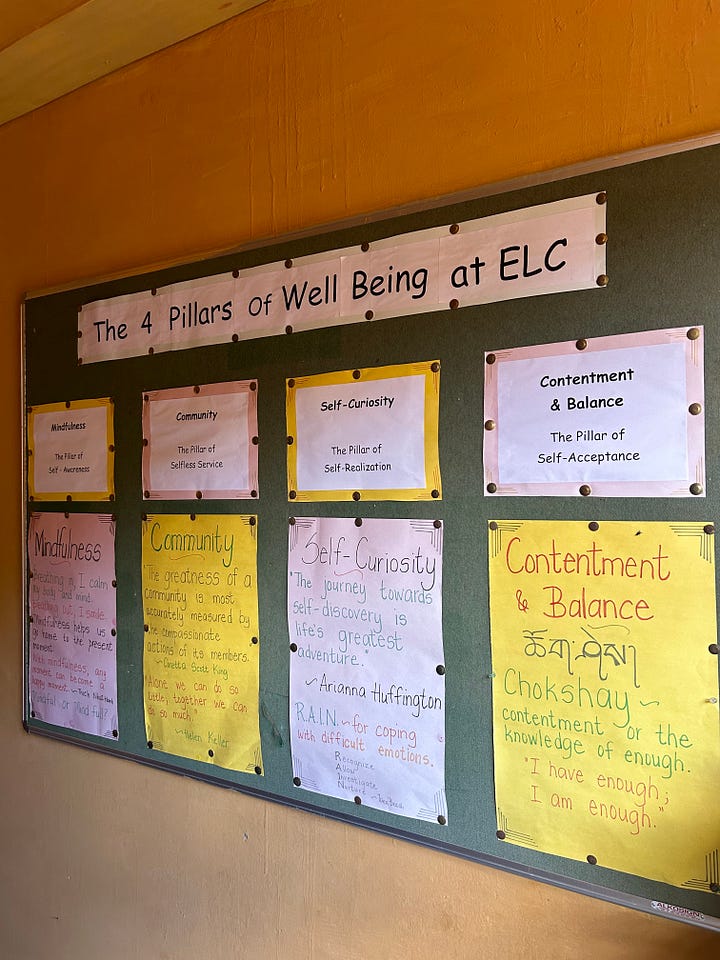 The 4 Pillars Of Well Being at ELC
Mindfulness
The Pillar of
Self - Awareness
Community
The Pillar of
Selfless Service
Self-Curiosity
The Pillar of
Self-Realization
Contentment
& Balance
The Pillar of
Self-Acceptance
Mindfulness
Breathing in, I calm
my body and mind.
Breathing out, I smile.
Mindfulness helps us
go home to the present
moment.
With mindfulness, any
moment can become a
happy moment. ~ Thich Nhat Hanh
Mindful or Mind full?
Community
"The greatness of a
community is most
accurately measured by
the compassionate
actions of its members.
~ Coretta Scott King
"Alone we can do so
little; together we can
do so much."
~ Helen Keller
Self-Curiosity
"The journey towards
self-discovery is
life's greatest
adventure."
~ Arianna Huffington
R.A.I.N. ~ for coping
with difficult emotions.
Recognize
Allow
Investigate
Nurture ~ Tara Brach
Contentment
& Balance
ཆོག་ཤེས།
Chokshay ~
contentment or the
knowledge of enough.
"I have enough;
I am enough."